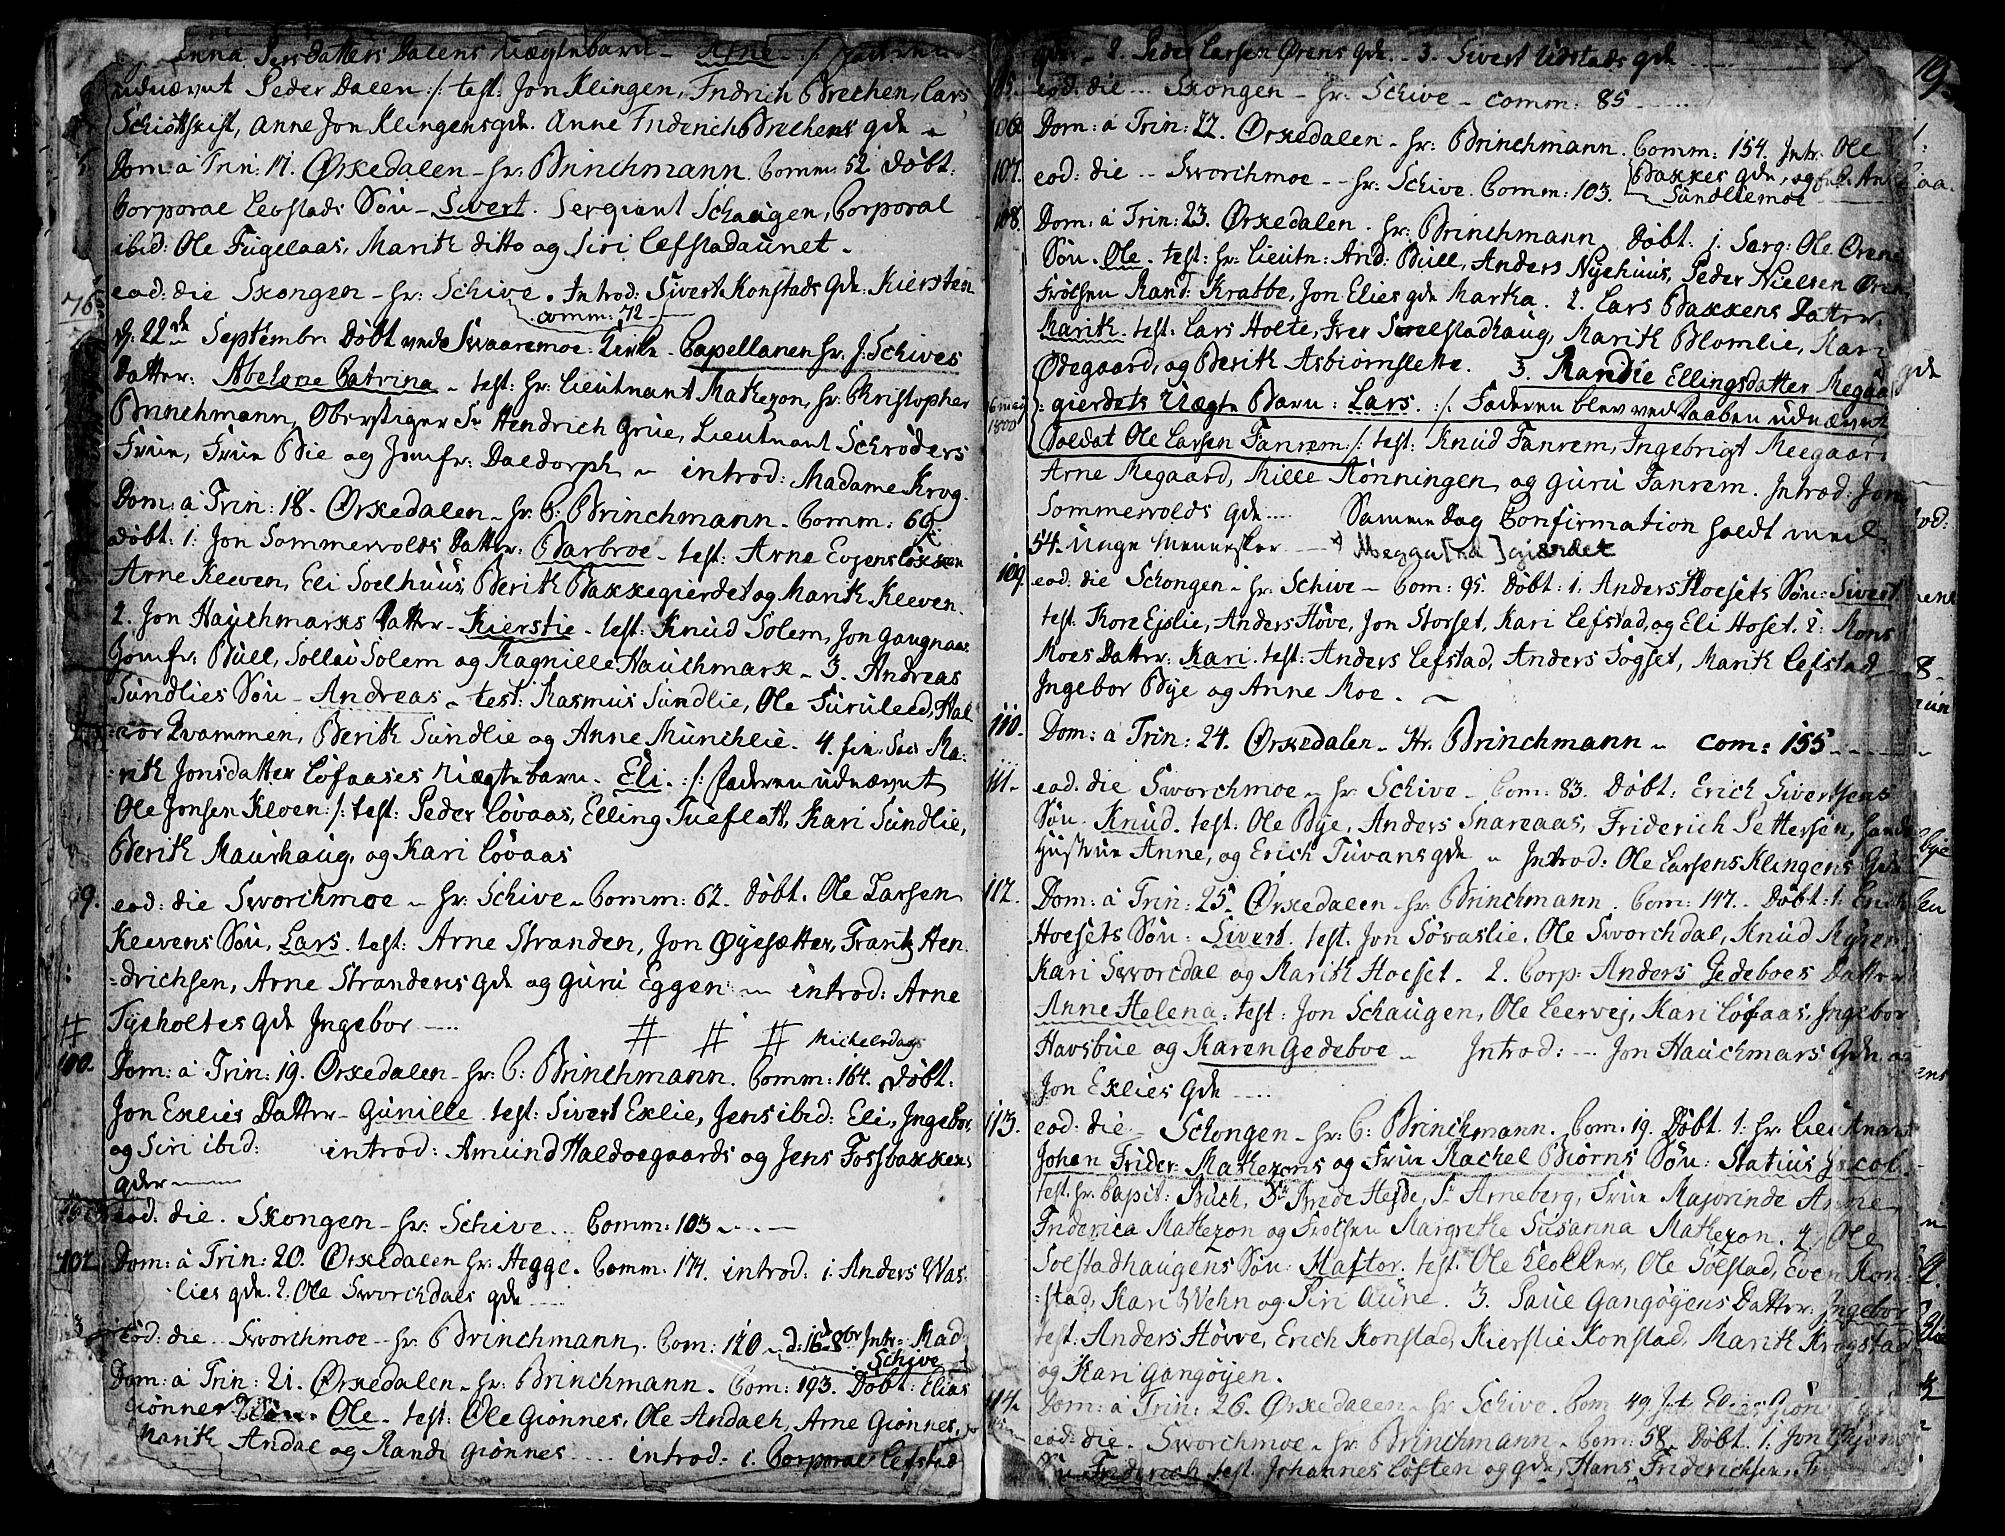 Anna Persdatters Dalens Uægtebarn - Arne ./. faderen
udnævnt Peder Dalen :/: test: Jon Klingen, Fridrich Brechen, Lars
Schiøttskift, Anne Jon Klingens gdk. Anne Friderich Brechens gdk
Dom: à Trin: 17. Ørkedalen - hr: Brinchmann. Comm: 52. døbt:
Corporal Lefstads Søn - Sivert. Sergiant Schaugen, Corporal
ibid: Ole Fugelaas, Marith ditto og Siri Lefstadaunet -
eod: die Skongen - hr: Schive. Introd: Sivert Konstads gdk: Kiersten
comm: 72
76
d. 22de Septembr: Døbt ved Swaaremoe Kirke - Capellanen hr. J: Schives
datter: Abelone Catrina - test: hr: Lieutnant Mathezon, hr: Christopher
Brinchmann, Oberstiger Sr Hendrich Grue, Lieutnant Schrøders
Frue, Frue Bie og Jomfr: Daldorph - introd: Madame Krog.
Dom: à Trin: 18. Ørkedalen - hr: C: Brinchmann - Comm: 60
døbt: 1: Jon Sommervolds Datter: Barbroe - test: Arne Evjensløkken
Arne Kleven, Eli Soelhuus, Berith Bakkegierdet og Marith Kleven.
2. Jon Hauchmarks Datter - Kierstie - test: Knud Solem, Jon Gaugnaas
Jomfr: Bull, Sollai Solem og Ragnille Hauchmark - 3. Andreas
Sundlies Søn - Andreas - test: Rasmus Sundlie, Ole Furuleed, Hal
vor Qvammen, Berith Sundlie og Anne Munchlie. 4. Ma:
:rith Jonsdatter Løfaases Uægte barn - Eli. :/: faderen udnævnt
Ole Jonsen Kloen :/: test: Peder Løvaas, Elling Tueflatt, Kari Sundlie,
Berith Maurhaug, og Kari Løvaas
99. eod: die Sworchmoe - hr: Schive - Comm: 62. døbt. Ole Larsen
Kleevens Søn, Lars. test: Arne Stranden, Jon Øyesætter, Frantz Hen-
=drichsen, Arne Strandens gdk og Guru Eggen - introd: Arne
Tyeholtes gdk Ingebor ---
# # # # Michelsdag
100. Dom: à Trin: 19. Ørkedalen - hr: C: Brinchmann. Comm: 164. døbt:
Jon Exlies Datter - Gunille test: Sivert Exlie, Jens ibid: Eli, Ingebor,
og Siri ibid: introd: Amund Haldoegaards og Jens Fossbakkens
gdkr
101 eod: die. Skongen - hr: Schive. Comm: 103 -
102 Dom: à Trin: 20. Ørkedalen hr: Hegge. Comm. 174. introd: 1. Anders Was-
lies gdk. 2. Ole Sworchdals gdk
3 eod: die. Sworchmoe - hr: Brinchmann. Com: 140 - d: 16de 8br Intr: Mad
Schive
Dom: à Trin: 21. Ørkedalen - hr: Brinchmann. Com: 193. Døbt: Elias
Giønnes Søn. Ole - test: Ole Giønnes, Ole Andael, Arne Giønnes,
Marith Andal og Randi Giønnes ... introd: 1. Corporal Lefstad
gdk - 2. Peder Larsen Ørens gdk. - 3. Sivert Udstads gdk
105. eod: die - Skongen - hr: Schive - comm: 85
106 Dom: à Trin: 22. Ørkedalen - hr: Brinchmann. Comm: 154. Intr: Ole
Bakkes gdk, og
Sundliemoe
107. eod: die - Sworchmoe - hr: Schive. Comm: 103.
108. Dom: à Trin: 23. Ørkedalen - hr: Brinchmann. Døbt: 1. Sarg: Ole Ørens
Søn. Ole. test: hr: Lieutn: And: Bull, Anders Nyehuus, Peder Nielsen Øren
Frølsen Rand: Krabbe, Jon Elies gdk Martha. 2. Lars Bakkens Datter:
Marith. test: Lars Holte, Iver Soelstadhaug, Marith Blomlie, Kari
Ødegaard, og Berith Asbiørnslette. 3. Randie Ellingsdatter Megaa
16 may 1800
:gierdets Uægte Barn: Lars. :/: Faderen blev ved Daaben udnævnt
Soldat Ole Larsen Fanrem :/: test: Knud Fanrem, Ingebrigt Meegaard
Arne Megaard, Mille Rønningen og Guru Fanrem. Introd: Jon
Sommervolds gdk ... Samme Dag Confirmation holdt med
54. Unge Mennesker --- + Megga[rd]gierdet
109. eod: die Schongen - hr: Schive - Com: 95. Døbt: 1. Anders Hoesets Søn: Sivert
test: Thore Ejslie, Anders Høve, Jon Storset, Kari Lefstad, og Eli Hoset. 2: Mons
Moes Datter: Kari. test: Anders Lefstad, Anders Sogset, Marith Lefstad
Ingebor Bye og Anne Moe.
110. Dom: à Trin: 24. Ørkedalen - Hr. Brinchmann - Com: 155
111. eod: die Sworchmoe - hr: Schive - Com: 83. Døbt: Erich Sivertsens
Søn - Knud. test: Ole Bye, Anders Snareaas, Friderich Pettersen, hands
Hustrue Anne, og Erich Tuvans gdk - Introd: Ole Larsens Klingens Gdk
112. Dom: à Trin: 25. Ørkedalen - hr: Brinchmann. Com: 147. Døbt: 1. Erich
Hoesets Søn: Sivert. test. Jon Søvaslie, Ole Sworchdal, Knud Myren
Kari Sworcdal og Marith Hoeset. 2. Corp: Anders Gedeboes Datter
Anne Helena: test: Jon Schaugen, Ole Leervej, Kari Løfaas, Ingebor
Havsbue og Karen Gedeboe - Introd: - Jon Hauchmars Gdk og
Jon Exlies Gdk ---
113. eod: die - Schongen - hr: C: Brinchmann. Com. 19. Døbt 1: hr. Lieutnant
Johan Frider: Mathezons og Frue Rachel Biørns Søn: Statius Jacob.
test. hr. Capit: Buch, Sr Brede Heyde, Sr Arneberg, Frue Majorinde Anne
Friderica Mathezon og Frølsen Margrethe Susanna Mathezon. 2. Ole
Solstadhaugens Søn: Haftor. test: Ole Klokker, Ole Solstad, Even Kon:
=stad, Kari Wehn og Siri Aune. 3. Paul Gangøyens Datter: Ingebor
test: Anders Høvve, Erich Konstad, Kierstie Konstad, Marith Krogstad
og Kari Gangøyen.
114. Dom: à Trin: 26. Ørkedalen - hr. Schive. Com 49. Intr: Elias
eod: die - Sworchmoe - hr: Brinchmann - Com: 58. Døbt. 1: Jon
Søn Friderich test. Johannes Løften og gdk, Hans Friderichsen,